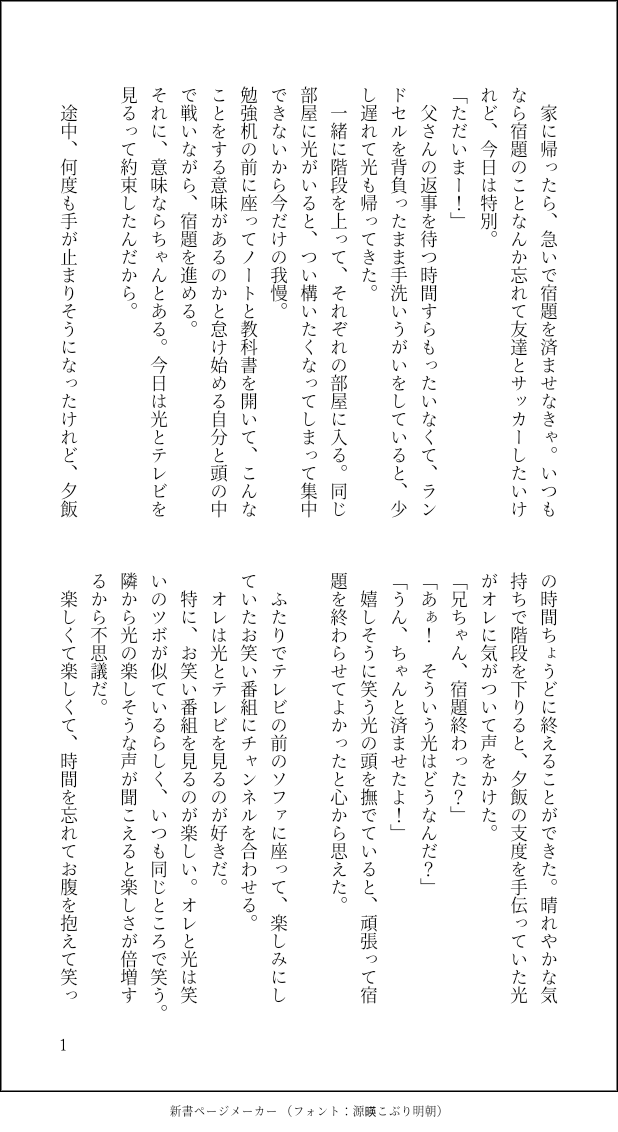 家に帰ったら、急いで宿題を済ませなきゃ。いつも
なら宿題のことなんか忘れて友達とサッカーしたいけ
れど、今日は特別。
「ただいまー！」
　父さんの返事を待つ時間すらもったいなくて、ラン
ドセルを背負ったまま手洗いうがいをしていると、少
し遅れて光も帰ってきた。
　一緒に階段を上って、それぞれの部屋に入る。同じ
部屋に光がいると、つい構いたくなってしまって集中
できないから今だけの我慢。
勉強机の前に座ってノートと教科書を開いて、こんな
ことをする意味があるのかと怠け始める自分と頭の中
で戦いながら、宿題を進める。
それに、意味ならちゃんとある。今日は光とテレビを
見るって約束したんだから。
　途中、何度も手が止まりそうになったけれど、夕飯
の時間ちょうどに終えることができた。晴れやかな気
持ちで階段を下りると、夕飯の支度を手伝っていた光
がオレに気がついて声をかけた。
「兄ちゃん、宿題終わった？」
「あぁ！　そういう光はどうなんだ？」
「うん、ちゃんと済ませたよ！」
　嬉しそうに笑う光の頭を撫でていると、頑張って宿
題を終わらせてよかったと心から思えた。
　ふたりでテレビの前のソファに座って、楽しみにし
ていたお笑い番組にチャンネルを合わせる。
　オレは光とテレビを見るのが好きだ。
　特に、お笑い番組を見るのが楽しい。オレと光は笑
いのツボが似ているらしく、いつも同じところで笑う。
隣から光の楽しそうな声が聞こえると楽しさが倍増す
るから不思議だ。
　楽しくて楽しくて、時間を忘れてお腹を抱えて笑っ
1
新書ページメーカー（フォント：源暎こぶり明朝）